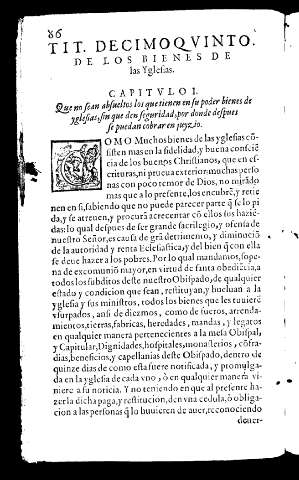 86
TIT. DECIMOQVINTO.
DE LOS BIENES DE
las Yglesias.
CAPITVLO I.
Que no sean absueltos los que tienen en su poder bienes de
Yglesias, sin que den seguridad, por donde despues
se puedan cobrar en juyzio.
COMO Muchos bienes de las yglesias cõ-
sisten mas en la fidelidad, y buena consciẽ
cia de los buenos Christianos, que en es-
crituras, ni prueua exterior: muchas perso
nas con poco temor de Dios, no mirãdo
mas que a lo presente, los encubrẽ, y retie
nen en si, sabiendo que no puede parecer parte q̃ se lo pi
da, y se atreuen, y procurã acrecentar cõ ellos sus haziẽ-
das: lo qual despues de ser grande sacrilegio, y ofensa de
nuestro Señor, es causa de grã detrimento, y diminuciõ
de la autoridad y renta Eclesiastica, y del bien q̃ con ella
se deue hazer a los pobres. Por lo qual mandamos, sope-
na de excomuniõ mayor, en virtud de santa obediẽcia, a
todos los subditos deste nuestro Obispado, de qualquier
estado y condicion que sean, restituyan, y bueluan a la
yglesia y sus ministros, todos los bienes que les tuuierẽ
vsurpados, ansi de diezmos, como de fueros, arrenda-
mientos, tierras, fabricas, heredades, mandas, y legatos
en qualquier manera pertenecientes a la mesa Obispal,
y Capitular, Dignidades, hospitales, monesterios, cõfra-
dias, beneficios, y capellanias deste Obispado, dentro de
quinze dias de como esta fuere notificada, y promulga-
da en la yglesia de cada vno, ò en qualquier manera vi-
niere a su noticia. Y no teniendo en que al presente ha-
zer la dicha paga, y restitucion, den vna cedula, ò obliga-
cion a las personas q̃ lo huuieren de auer, reconociendo
deuer-